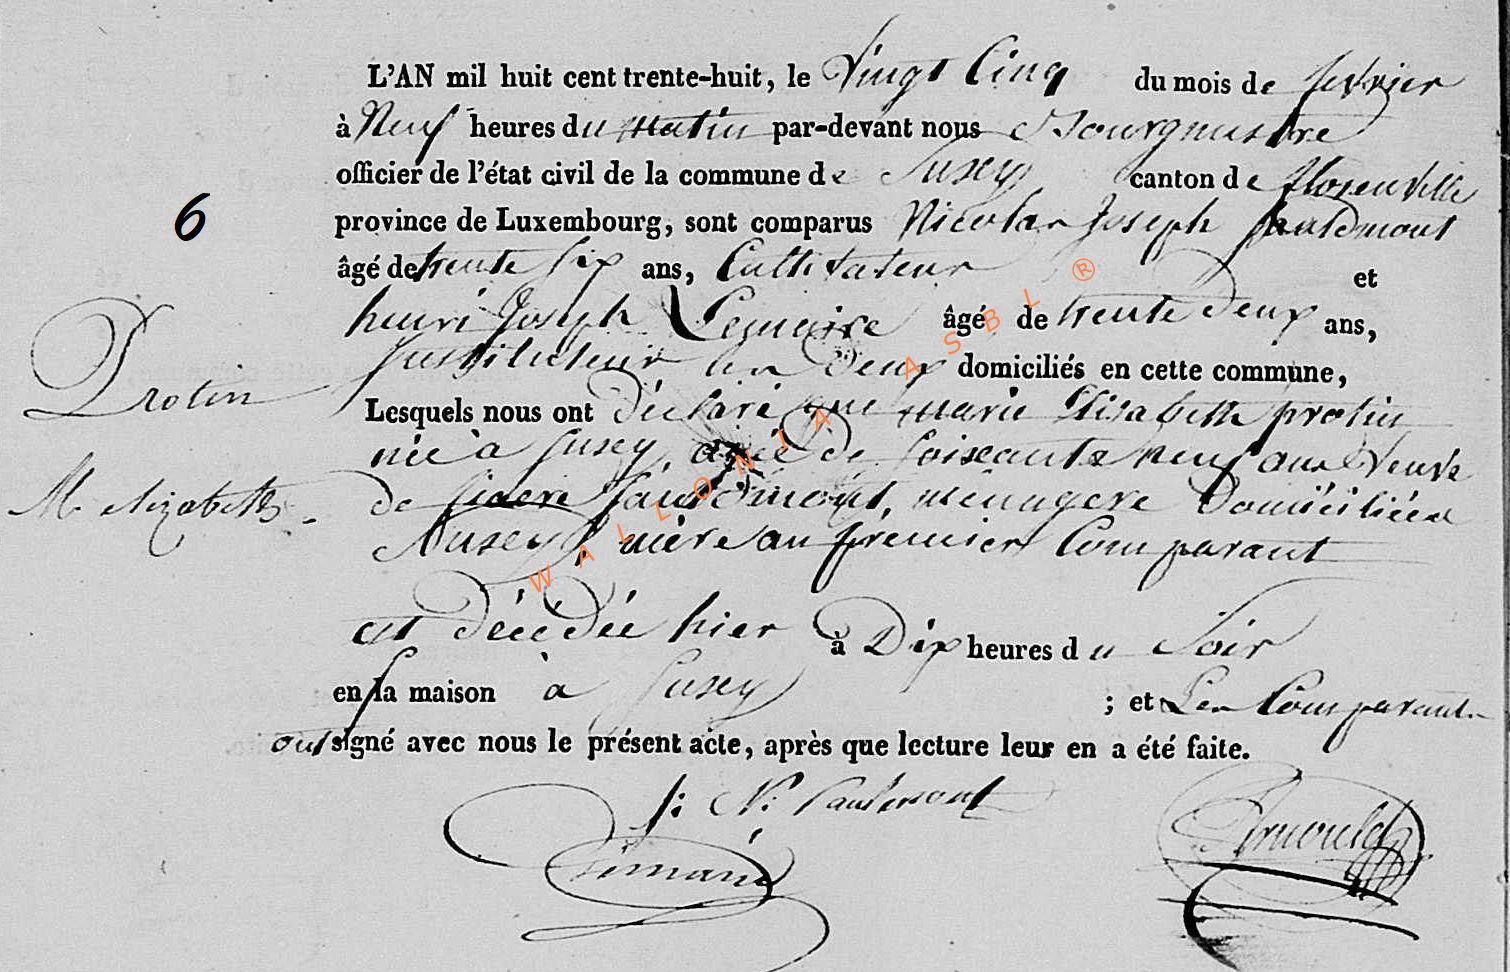 L'AN mil huit cent trente-huit, le Vingt Cinq du mois de fevrier
à Neuf heures du matin par-devant nous Bourgmestre
officier de l'état civil de la commune de Suxey canton de florenville
6
province de Luxembourg, sont comparus Nicolas Joseph Saudmont
âgé de trente six ans, Cultivateur et
henri Joseph Lemaire âgé de trente Deux ans,
Instituteur les Deux domiciliés en cette commune,
Protin
Lesquels nous ont Déclaré que marie Elisabeth protin
née à Suxey agée de soixante neuf ans Veuve
M. elizabeth
de menagere Domiciliée a
Suxey mère au premier Comparant
est Décédée hier à Dix heures du Soir
en sa maison à Suxey ; et Les Comparants
ont signé avec nous le présent acte, après que lecture leur en a été faite.
j: N:
Arnould
WALLONIA ASBL ®